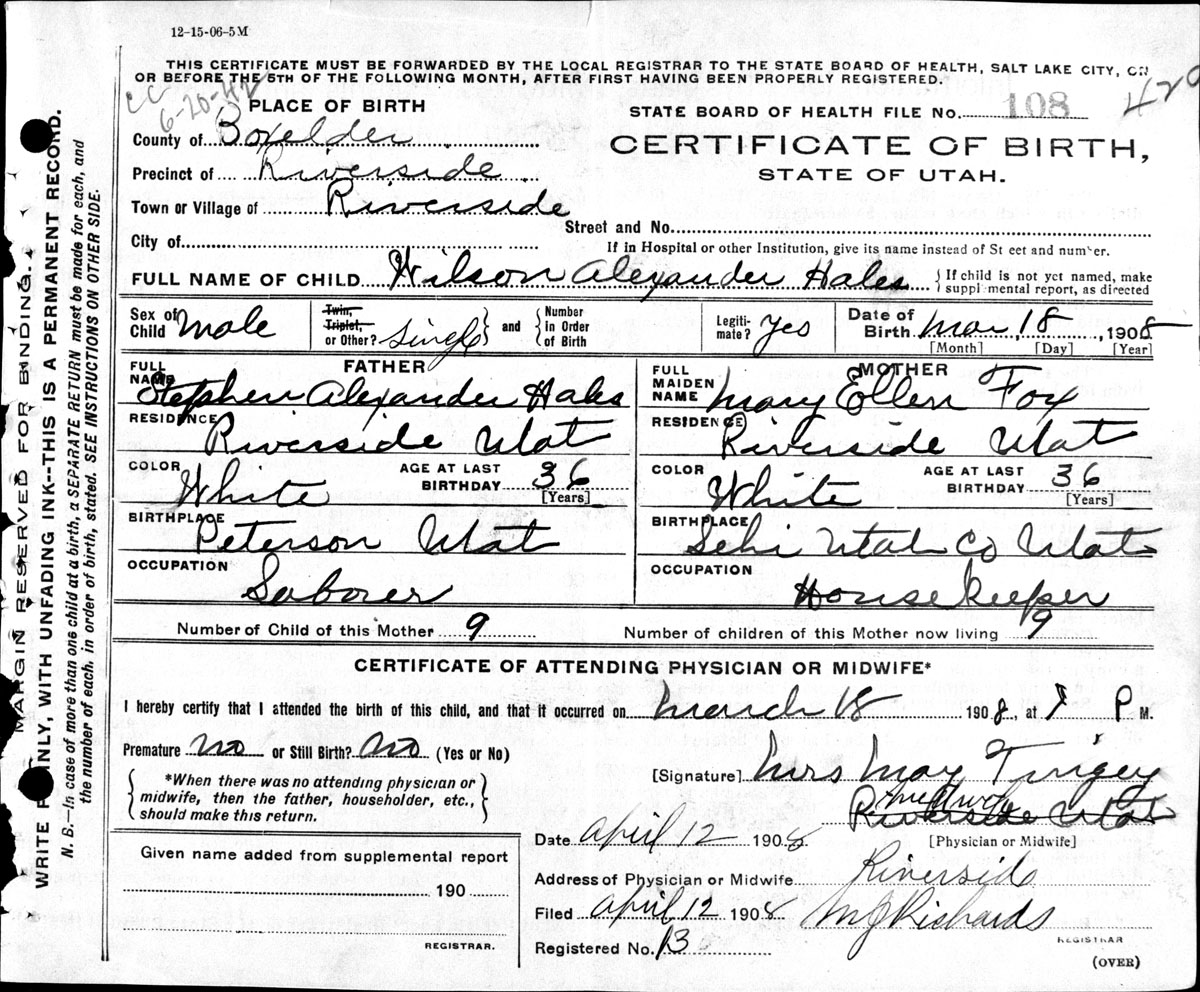 12-15-06-5M
THIS CERTIFICATE MUST BE FORWARDED BY THE LOCAL REGISTRAR TO THE STATE BOARD OF HEALTH, SALT LAKE CITY, ON
OR BEFORE THE 5TH OF THE FOLLOWING MONTH, AFTER FIRST HAVING BEEN PROPERLY REGISTERED.
CC
6-20-42
PLACE OF BIRTH
STATE BOARD OF HEALTH FILE No. 108
420
County of Boxelder
CERTIFICATE OF BIRTH,
STATE OF UTAH.
Precinct of Riverside
Town or Village of Riverside
Street and No.
City of
If in Hospital or other Institution, give its name instead of St eet and number.
FULL NAME OF CHILD Wilson Alexander Hales {If child is not yet named, make
supplemental report, as directed
Sex of
Child Male
Twin,
Triplet,
or Other? Single
and
Number
in Order
of Birth
Legiti-
mate? Yes
Date of
Birth Mar 18, 1908
[Month] [Day] [Year]
FATHER
FULL
NAME Stephen Alexander Hales
RESIDENCE
Riverside Utah
COLOR White
AGE AT LAST
BIRTHDAY 36
[Years]
BIRTHPLACE
Peterson Utah
OCCUPATION
Laborer
MOTHER
FULL
MAIDEN
NAME Mary Ellen Fox
RESIDENCE
Riverside Utah
COLOR White
AGE AT LAST
BIRTHDAY 36
[Years]
BIRTHPLACE
Lehi Utah Co Utah
OCCUPATION
Housekeeper
Number of Child of this Mother 9
Number of children of this Mother now living 9
CERTIFICATE OF ATTENDING PHYSICIAN OR MIDWIFE*
I hereby certify that I attended the birth of this child, and that it occurred on March 18 1908, at P M.
Premature No or Still Birth? No (Yes or No)
{*When there was no attending physician or
midwife, then the father, householder, etc.,
should make this return.}
[Signature] Mrs May Tingey
Midwife
Riverside Utah
[Physician or Midwife]
Date April 12 1908.
Given name added from supplemental report
190
REGISTRAR.
Address of Physician or Midwife Riverside
Filed April 12 1908 M J Richards
REGISTRAR
Registered No. 13
(OVER)
MARGIN RESERVED FOR BINDING.
WRITE PLAINLY, WITH UNFADING INK--THIS IS A PERMANENT RECORD.
N. B.—In case of more than one child at a birth, a SEPARATE RETURN must be made for each, and
the number of each, in order of birth, stated. SEE INSTRUCTIONS ON OTHER SIDE.